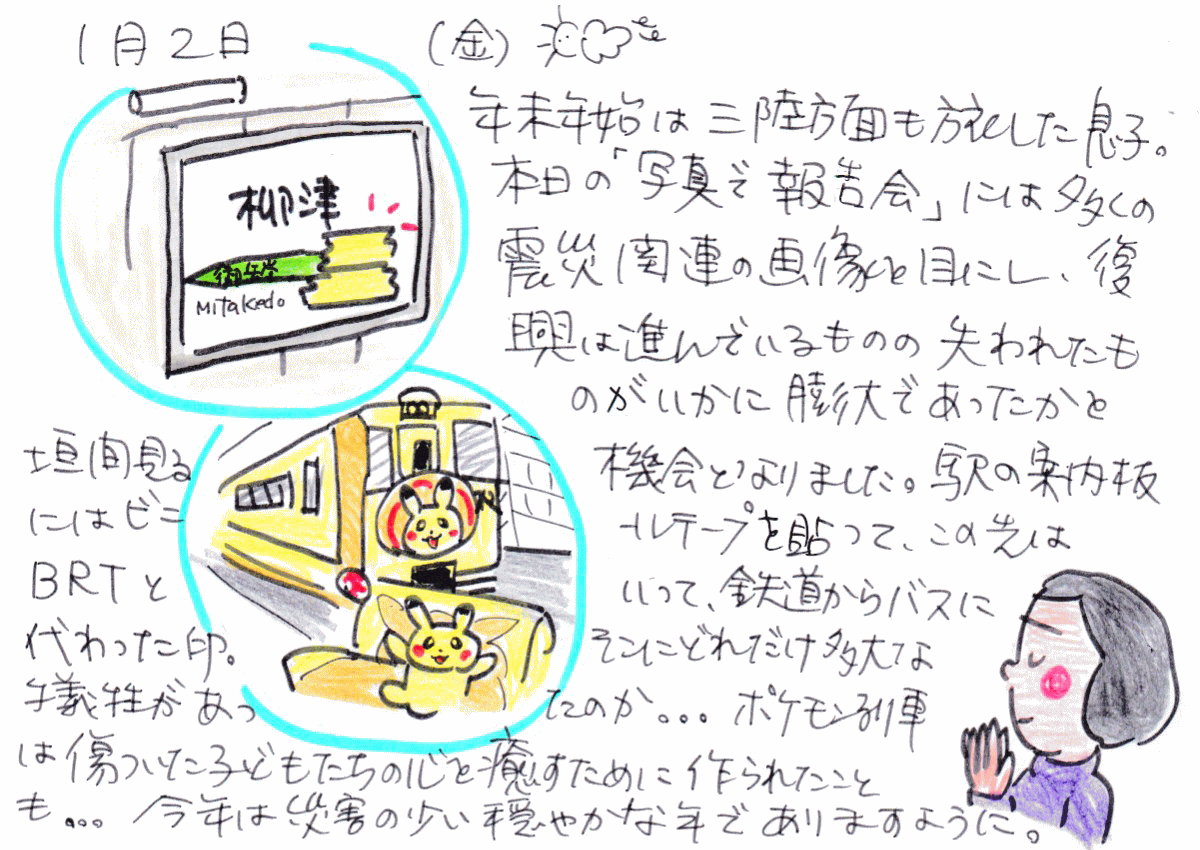 1月2日 (金)
柳津
御岳堂
Mitakedo
年末年始は三陸方面も旅した息子。
本日の「写真で報告会」には多くの
震災関連の画像を目にし、復
興は進んでいるものの失われたも
のがいかに膨大であったかを
垣間見る機会となりました。駅の案内板
にはビニールテープを貼って、この先は
BRTといって、鉄道からバスに
代わった印。そこにどれだけ多大な
犠牲があったのか...ポケモン列車
は傷ついた子どもたちの心を癒すために作られたこと
も...今年は災害の少い穏やかな年でありますように。